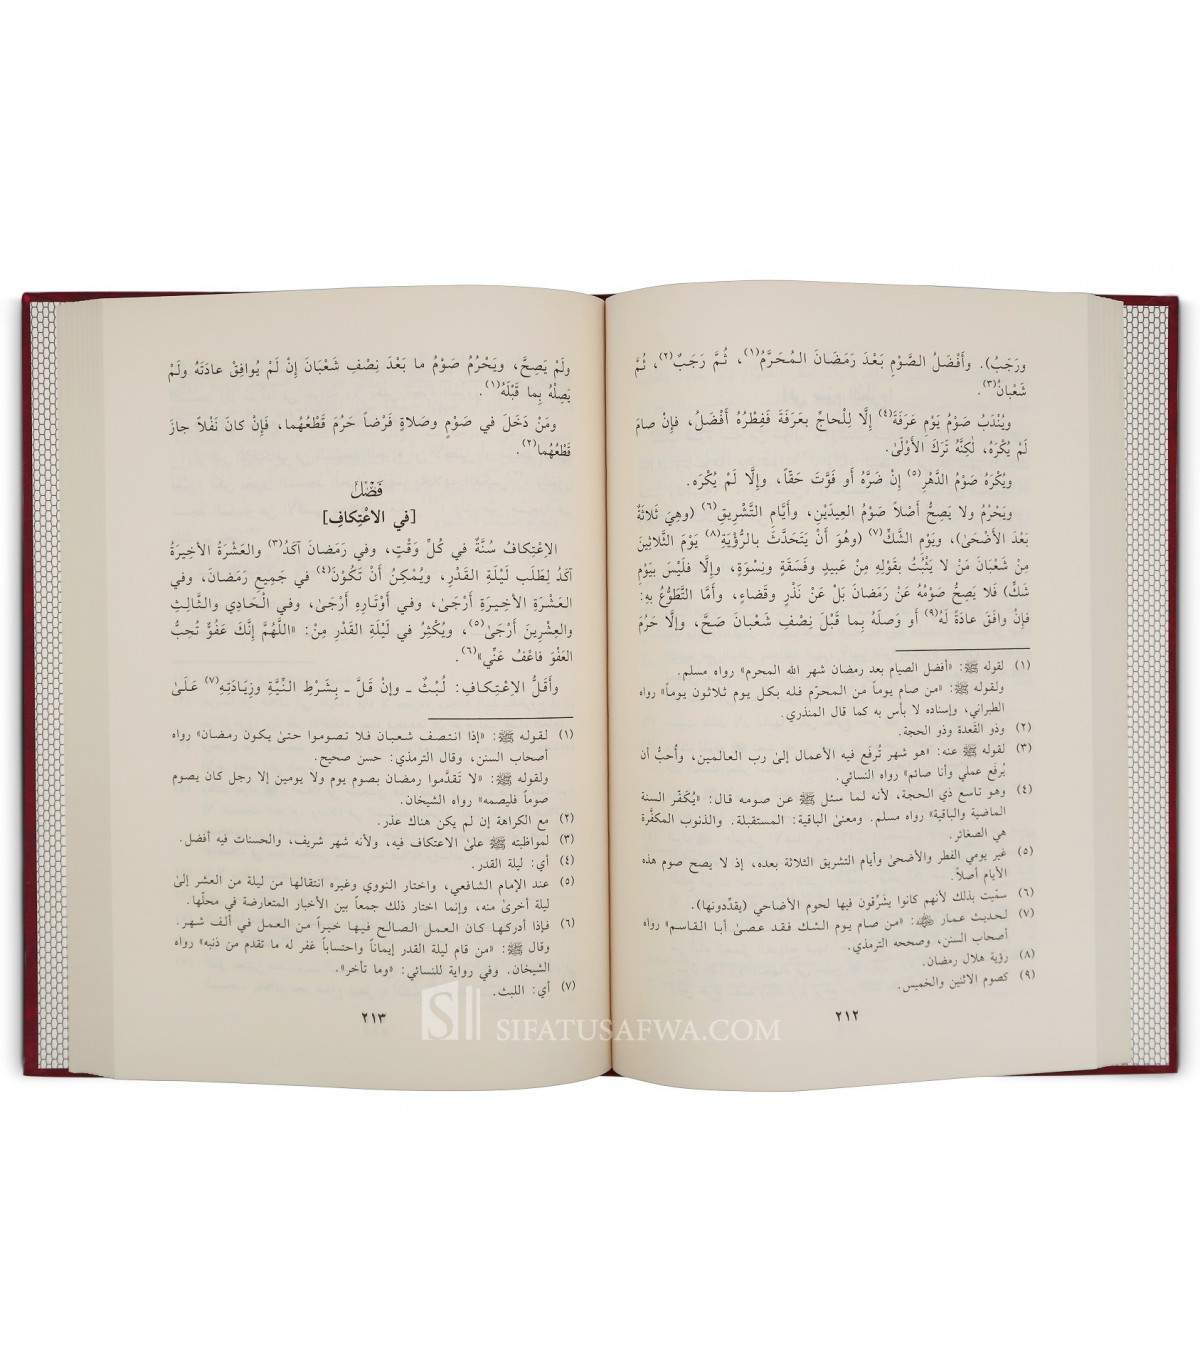 ورَجَبُ). وأَفْضَلُ الصَّوْمِ بَعْدَ رَمَضَانَ المُحَرَّمُ(١)، ثُمَّ رَجَبٌ(٢)، ثُمَّ
شَعْبانُ(٣).
ويُنْدَبُ صَوْمُ يَوْمِ عَرَفَةَ(٤) إِلَّا لِلْحاجِّ بعَرَفَةَ فَفِطْرُهُ أَفْضَلُ، فإِنْ صامَ
لَمْ يُكْرَهْ، لٰكِنَّهُ تَرَكَ الأَوْلَىٰ.
ويُكْرَهُ صَوْمُ الدَّهْرِ(٥) إِنْ ضَرَّهُ أَو فَوَّتَ حَقّاً، وإِلَّا لَمْ يُكْرَه.
ويَحْرُمُ ولا يَصِحُّ أَصْلاً صَوْمُ العِيدَيْنِ، وأَيَّامِ التَّشْرِيقِ(٦) (وهِيَ ثَلاثَةٌ
بَعْدَ الأَضْحَىٰ)، ويَوْمِ الشَّكِّ(٧) (وهُوَ أَنْ يَتَحَدَّثَ بالرُّؤْيَةِ(٨) يَوْمَ الثَّلاثِينَ
مِنْ شَعْبَانَ مَنْ لا يَثْبُتُ بقَوْلِهِ مِنْ عَبِيدٍ وفَسَقَةٍ ونِسْوَةٍ، وإِلَّا فلَيْسَ بيَوْمِ
شَكٍّ) فَلا يَصِحُّ صَوْمُهُ عَنْ رَمَضانَ بَلْ عَنْ نَذْرٍ وقَضاءٍ، وأَمَّا التَّطَوُّعُ بهِ:
فإِنْ وافَقَ عادَةً لَهُ(٩) أَو وَصَلَهُ بِما قَبْلَ نِصْفِ شَعْبانَ صَحَّ، وإِلَّا حَرُمَ
(١) لقوله ﷺ: «أفضل الصيام بعد رمضان شهر الله المحرم» رواه مسلم.
ولقوله ﷺ: «من صام يوماً من المحرّم فله بكل يوم ثلاثون يوماً» رواه
الطبراني، وإسناده لا بأس به كما قال المنذري.
(٢) وذو القَعدة وذو الحجة.
(٣) لقوله ﷺ عنه: «هو شهر تُرفَع فيه الأعمال إلىٰ رب العالمين، وأُحبُّ أن
يُرفَع عملي وأنا صائم» رواه النسائي.
(٤) وهو تاسع ذي الحجة، لأنه لما سئل ﷺ عن صومه قال: «يُكَفّر السنة
الماضية والباقية» رواه مسلم. ومعنىٰ الباقية: المستقبلة. والذنوب المكفَّرة
هي الصغائر.
(٥) غير يومي الفطر والأضحىٰ وأيام التشريق الثلاثة بعده، إذ لا يصح صوم هذه
الأيام أصلاً.
(٦) سمّيت بذلك لأنهم كانوا يشرِّقون فيها لحوم الأضاحي (يقدِّدونها).
(٧) لحديث عمار ﷺ: «من صام يوم الشك فقد عصىٰ أبا القاسم» رواه
أصحاب السنن، وصححه الترمذي.
(٨) رؤية هلال رمضان.
(٩) كصوم الاثنين والخميس.
٢١٢
ولَمْ يَصِحَّ، ويَحْرُمُ صَوْمُ ما بَعْدَ نِصْفِ شَعْبانَ إِنْ لَمْ يُوافِقْ عادَتَهُ ولَمْ
يَصِلْهُ بِما قَبْلَهُ(١).
ومَنْ دَخَلَ في صَوْمٍ وصَلاةٍ فَرْضاً حَرُمَ قَطْعُهُما، فَإِنْ كانَ نَفْلاً جازَ
قَطْعُهُما(٢).
فَصْلٌ
[في الاعْتِكافِ]
الإعْتِكافُ سُنَّةٌ في كُلِّ وَقْتٍ، وفي رَمَضانَ آكَدُ(٣) والعَشْرَةُ الأخِيرَةُ
آكَدُ لِطَلَبِ لَيْلَةِ القَدْرِ، ويُمْكِنُ أَنْ تَكُوْنَ(٤) في جَمِيعِ رَمَضَانَ، وفي
العَشْرَةِ الأَخِيرَةِ أَرْجَىٰ، وفي أَوْتارِهِ أَرْجَىٰ، وفي الْحَادِي والثَّالِثِ
والعِشْرِينَ أَرْجَىٰ(٥)، ويُكْثِرُ في لَيْلَةِ القَدْرِ مِنْ: «اللَّهُمَّ إِنَّكَ عَفُوٌّ تُحِبُّ
العَفْوَ فاعْفُ عَنِّي»(٦).
وأَقَلُّ الإعْتِكافِ: لُبْثٌ ـ وإنْ قَلَّ ـ بِشَرْطِ النِّيَّةِ وزِيَادَتِهِ(٧) عَلَىٰ
(١) لقوله ﷺ: «إذا انتصف شعبان فلا تصوموا حتىٰ يكون رمضان» رواه
أصحاب السنن، وقال الترمذي: حسن صحيح.
ولقوله ﷺ: «لا تَقدَّموا رمضان بصوم يوم ولا يومين إلا رجل كان يصوم
صوماً فليصمه» رواه الشيخان.
(٢) مع الكراهة إن لم يكن هناك عذر.
(٣) لمواظبته ﷺ علىٰ الاعتكاف فيه، ولأنه شهر شريف، والحسنات فيه أفضل.
(٤) أي: ليلة القدر.
(٥) عند الإمام الشافعي، واختار النووي وغيره انتقالها من ليلة من العشر إلىٰ
ليلة أخرىٰ منه، وإنما اختار ذلك جمعاً بين الأخبار المتعارضة في محلّها.
(٦) فإذا أدركها كان العمل الصالح فيها خيراً من العمل في ألف شهر.
وقال ﷺ: «من قام ليلة القدر إيماناً واحتساباً غفر له ما تقدم من ذنبه» رواه
الشيخان. وفي رواية للنسائي: «وما تأخر».
(٧) أي: اللبث.
٢١٣
SIFATUSAFWA.COM